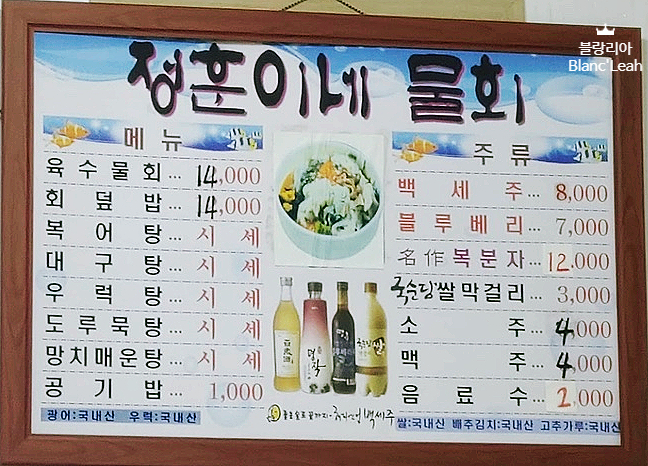 블랑리아
Blanc'Leah
정훈이네 물회
메뉴
육수물회... 14,000
회덮밥... 14,000
복어탕... 시세
대구탕... 시세
우럭탕... 시세
도루묵탕... 시세
망치매운탕... 시세
공기밥... 1,000
광어:국내산 우럭:국내산
주류
백세주... 8,000
블루베리... 7,000
名作복분자... 12,000
국순당쌀막걸리... 3,000
소주... 4,000
맥주... 4,000
음료수... 2,000
백세주
쌀:국내산 배추김치:국내산 고추가루:국내산